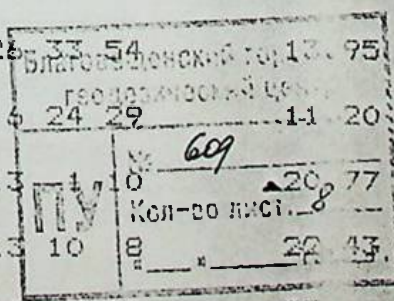 6 33 54 13. 95
Благовещенский гор
геодезический центр
6 24 29 11 20
№ 609
3 1 10 20 77
ПУ
Кол-во лист. 8
13 10 8 22 43
" "